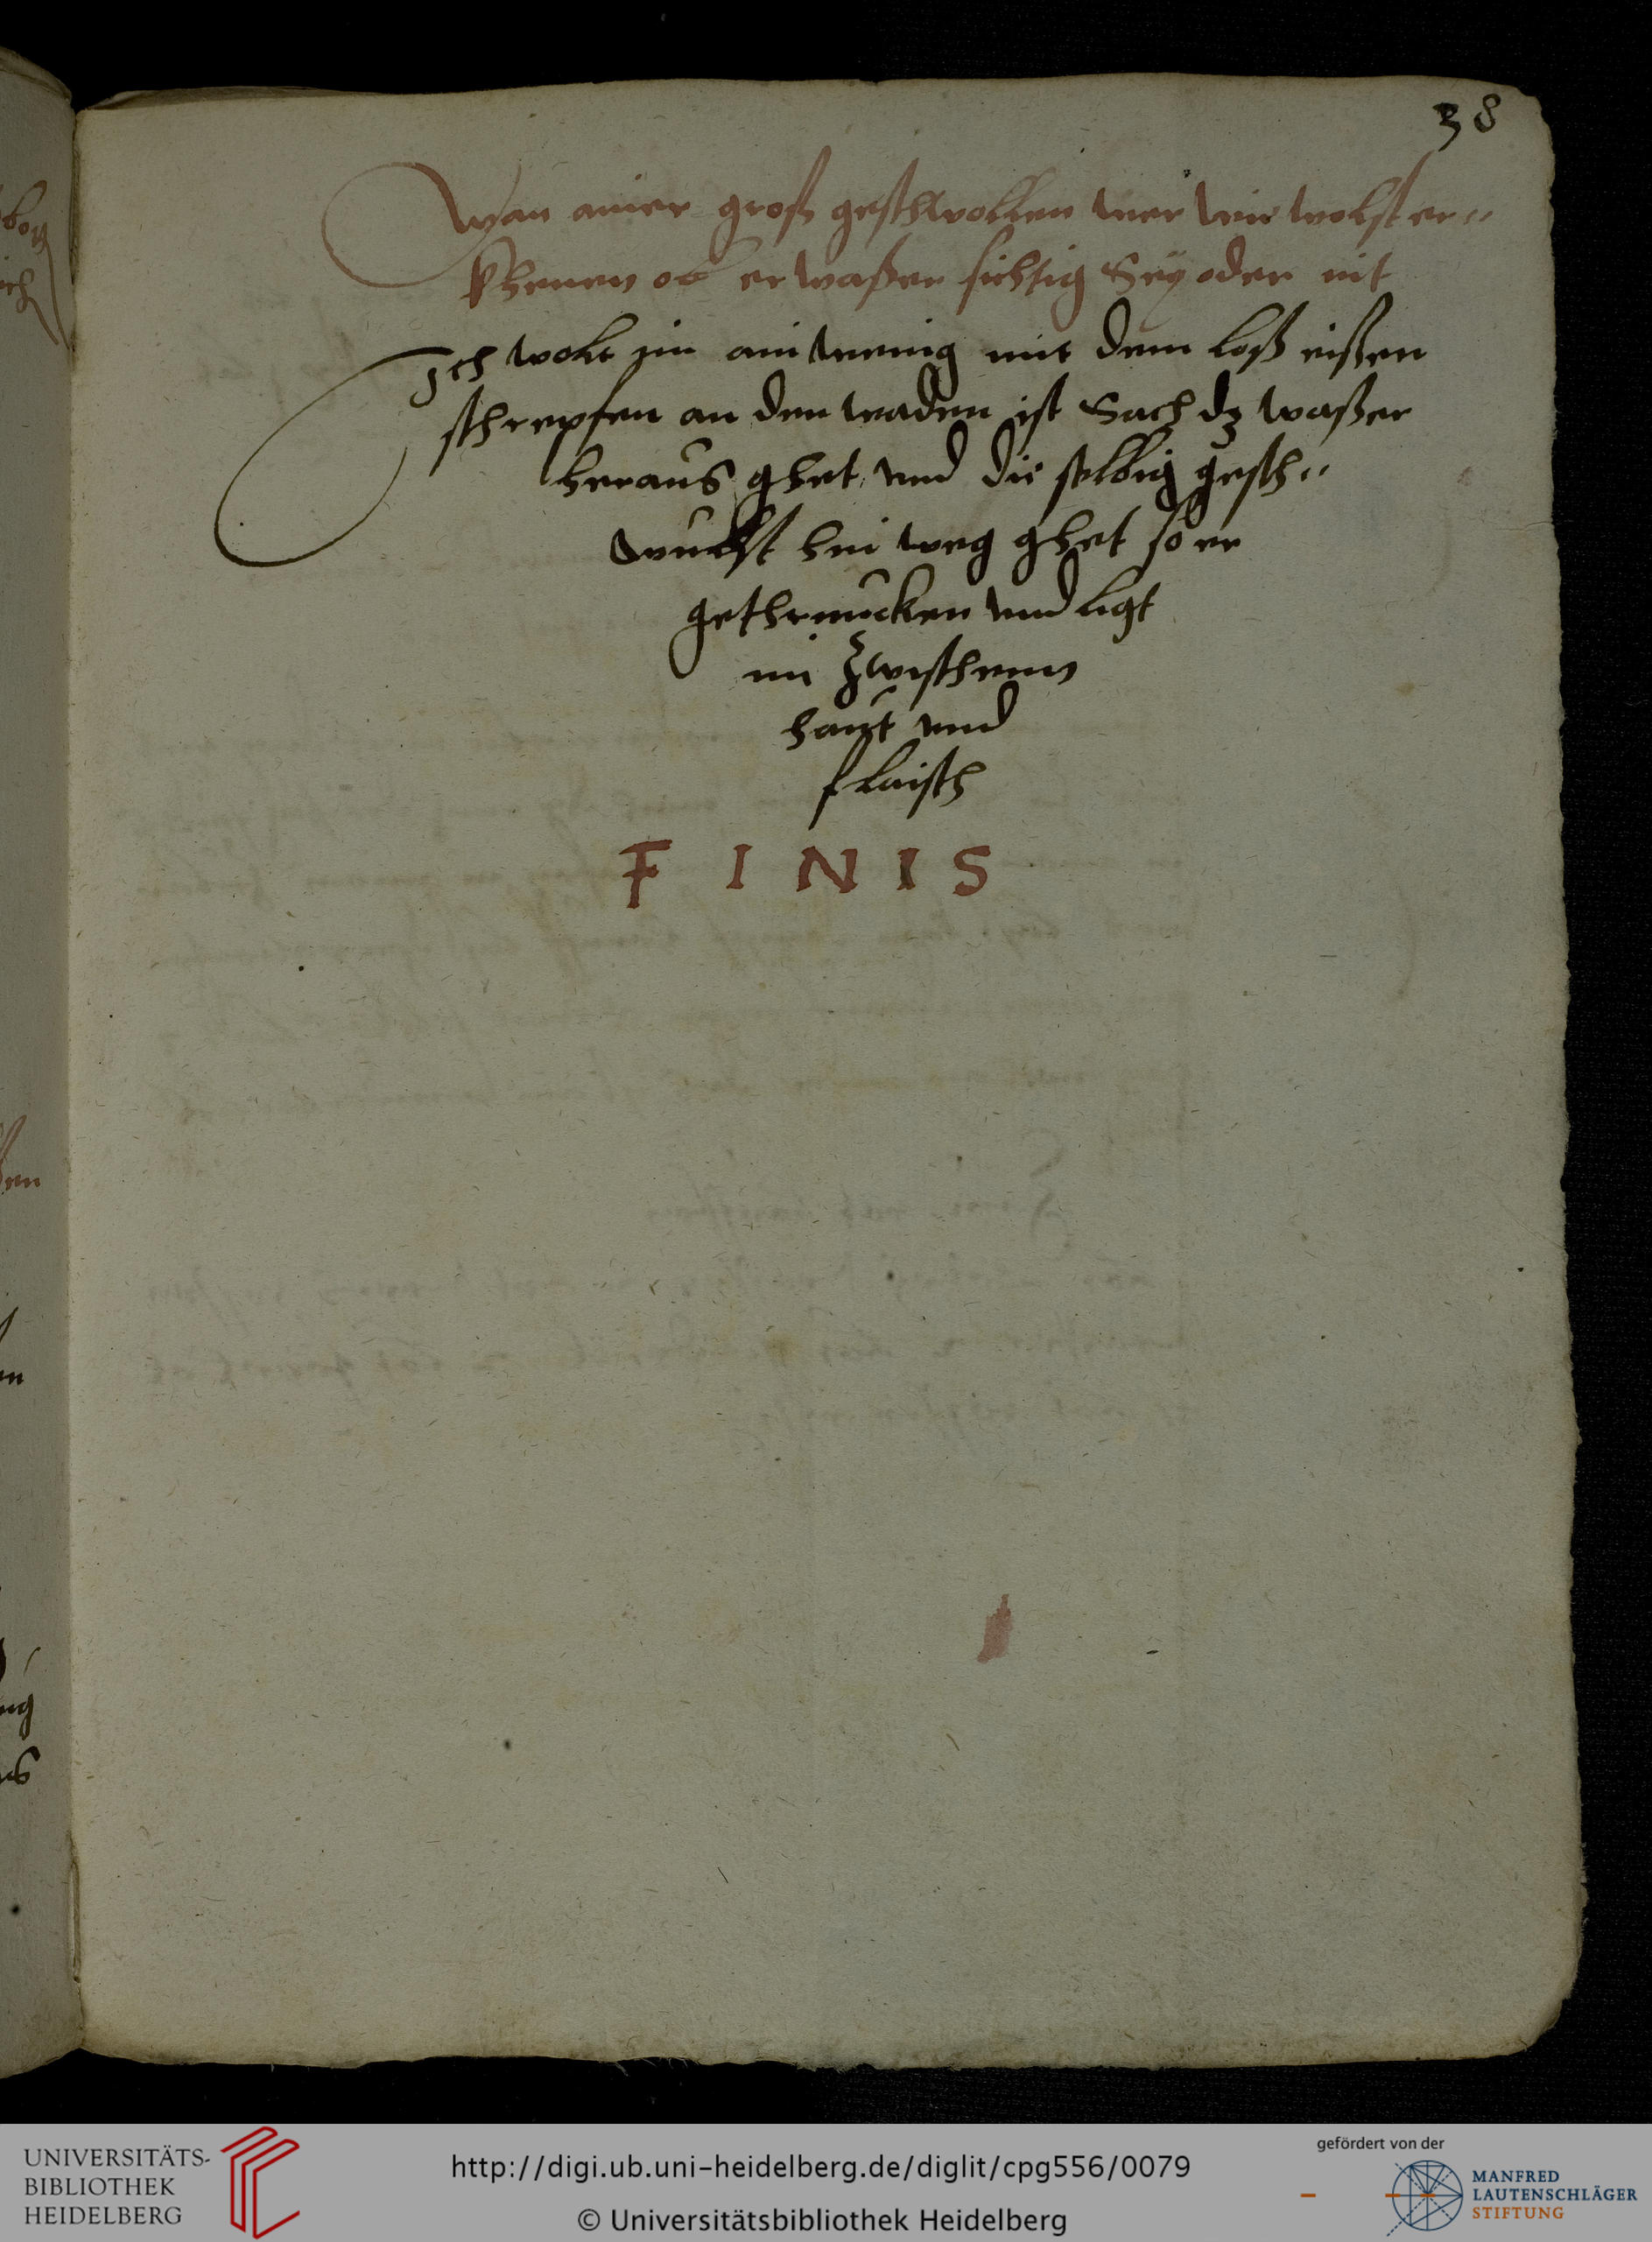 38
Wan ainer groß geschwollen wer wie wolst er„
khenen ob er waßer sichtig Seÿ oder nit
Ich wolt jm ain wenig mit dem loß eißen
schrepfen an den waden ist Sach dz waßer
heraus ghet und die selbig gesch„
wulst hin weg ghet so er
gethruncken und ligt
im Zwischenn
haut und
flaisch
F I N I S
UNIVERSITÄTS-
BIBLIOTHEK
HEIDELBERG
http://digi.ub.uni-heidelberg.de/diglit/cpg556/0079
© Universitätsbibliothek Heidelberg
gefördert von der
MANFRED
LAUTENSCHLÄGER
STIFTUNG